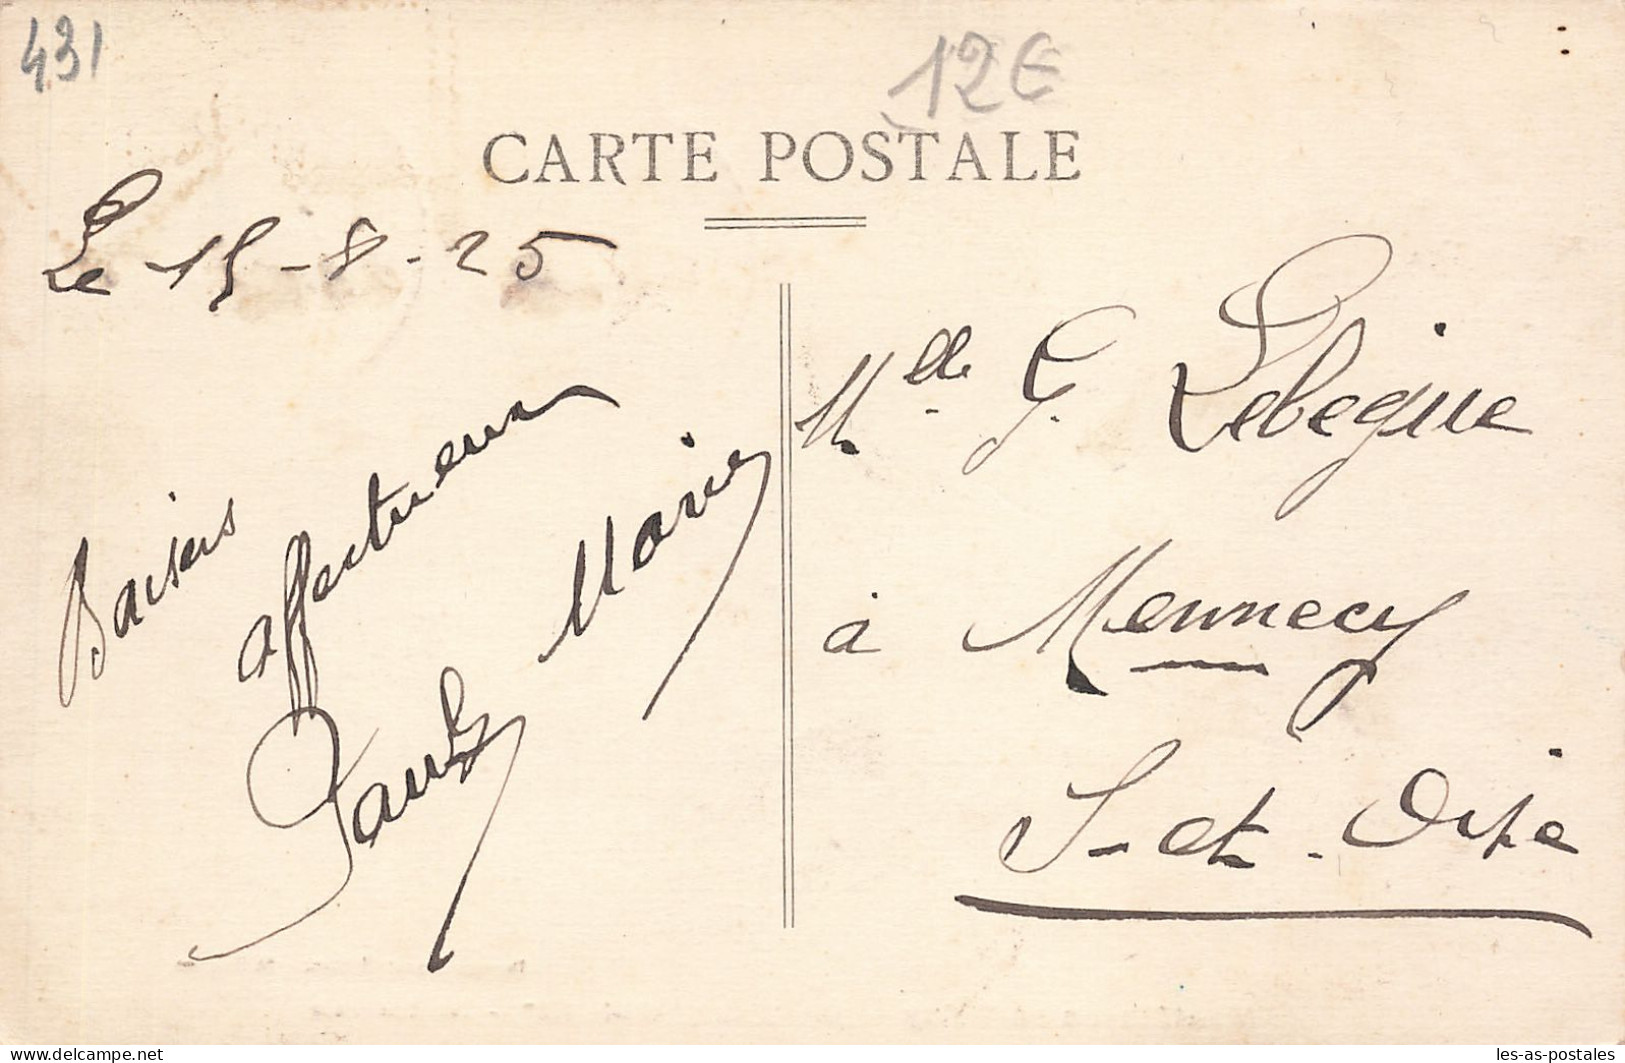 431
12€
CARTE POSTALE
Le 15-8-25
Baisers
affectueux
Marie
Mlle G. Lebegue
à Mennecy
S-et-Oise
www.delcampe.net
les-as-postales